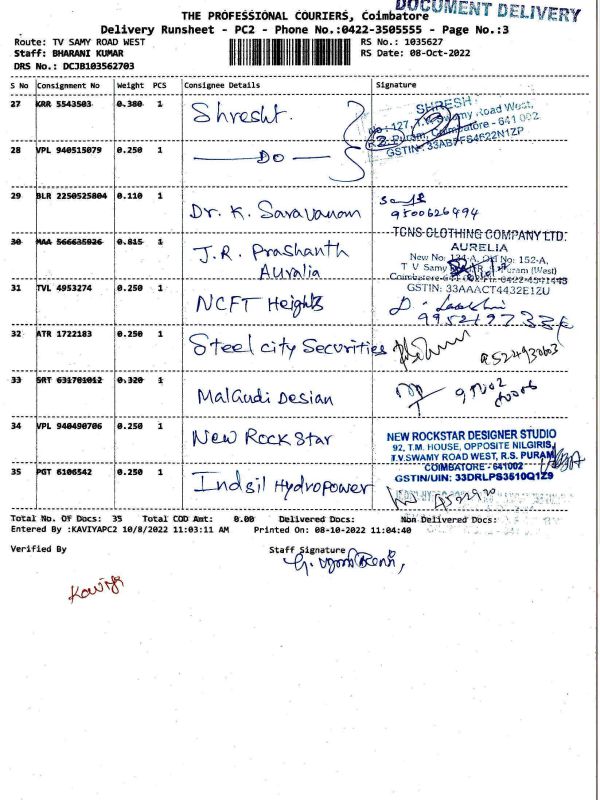 DOCUMENT DELIVERY
THE PROFESSIONAL COURIERS, Coimbatore
Delivery Runsheet - PC2 - Phone No.:0422-3505555 - Page No.:3
Route: TV SAMY ROAD WEST RS No.: 1035627
Staff: BHARANI KUMAR RS Date: 08-Oct-2022
DRS No.: DCJB103562703
S No Consignment No Weight PCS Consignee Details Signature
27 KRR 5543503 0.380 1 Shresht.
SHRESH
127, T.V. Swamy Road West,
R.S. Puram, Coimbatore - 641 002
GSTIN:
28 VPL 940515079 0.250 1 DO
29 BLR 2250525804 0.110 1 Dr. K. Saravanan
9500626494
30 MAA 566635026 0.815 1 J.R. Prashanth
Auralia
TCNS CLOTHING COMPANY LTD.
AURELIA
New No: 134-A, Old No: 152-A,
T V Samy Puram (West)
GSTIN: 33AAACT4432E1ZU
31 TVL 4953274 0.250 1 NCFT Heights
32 ATR 1722183 0.250 1 Steel city Securities
33 SRT 631701012 0.320 1 Malgudi Desian
34 VPL 940490706 0.250 1 New Rock Star
NEW ROCKSTAR DESIGNER STUDIO
92, T.M. HOUSE, OPPOSITE NILGIRIS,
T.V.SWAMY ROAD WEST, R.S. PURAM,
COIMBATORE - 641002
GSTIN/UIN: 33DRLPS3510Q1Z9
35 PGT 6106542 0.250 1 Indsil Hydropower
Total No. Of Docs: 35 Total COD Amt: 0.00 Delivered Docs: Non Delivered Docs:
Entered By :KAVIYAPC2 10/8/2022 11:03:11 AM Printed On: 08-10-2022 11:04:40
Verified By Staff Signature
Kaviya